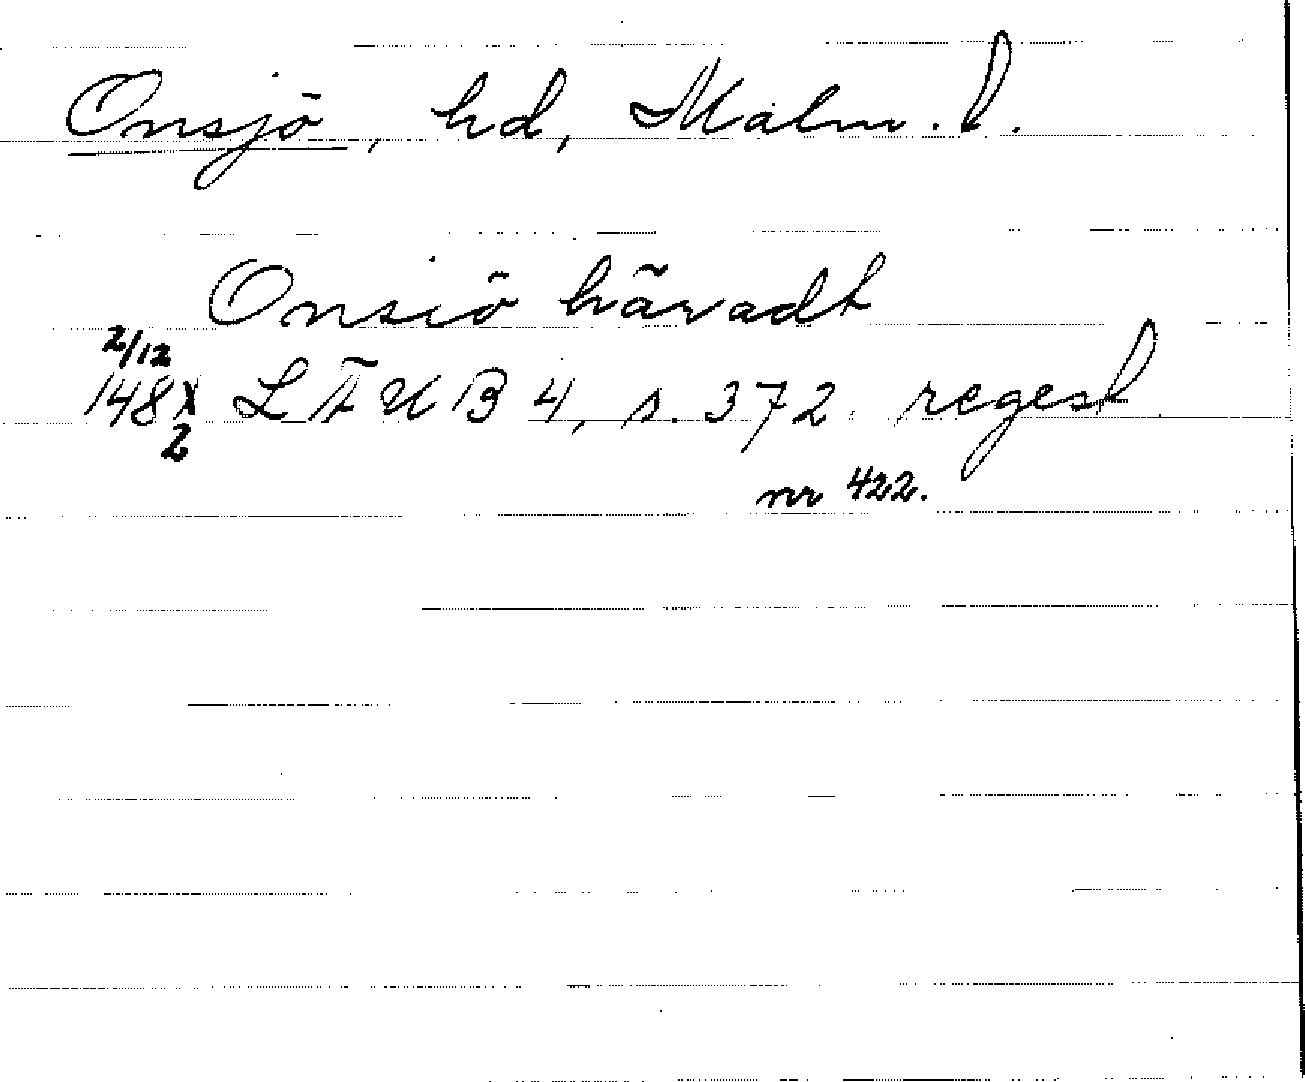 Onsjö, hd, Malm. l.
Onsiö häradt
2/12
148X LÄUB 4, s. 372 regest
2
nr 422.